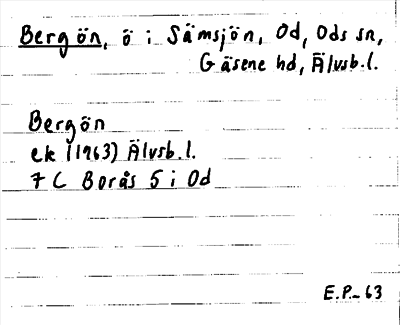 Bergön, ö i Sämsjön, Od, Ods sn,
Gäsene hd, Älvsb.l.
Bergön
ek (1963) Älvsb.l.
7 C Borås 5 i Od
E.P.-63